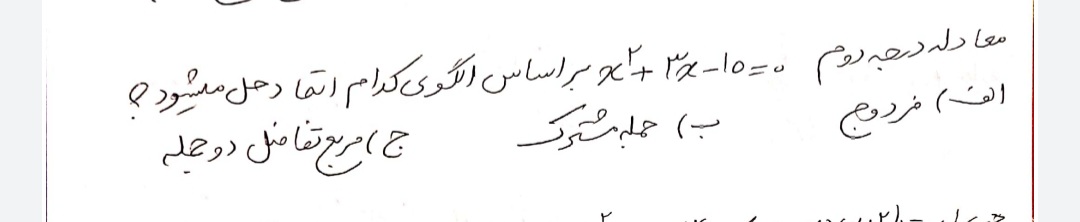 معادله درجه دوم x²+۳x-۱۰=۰ براساس الگوی کدام اتحاد حل میشود؟
الف) مزدوج ب) جمله مشترک ج) مربع تفاضل دو جمله